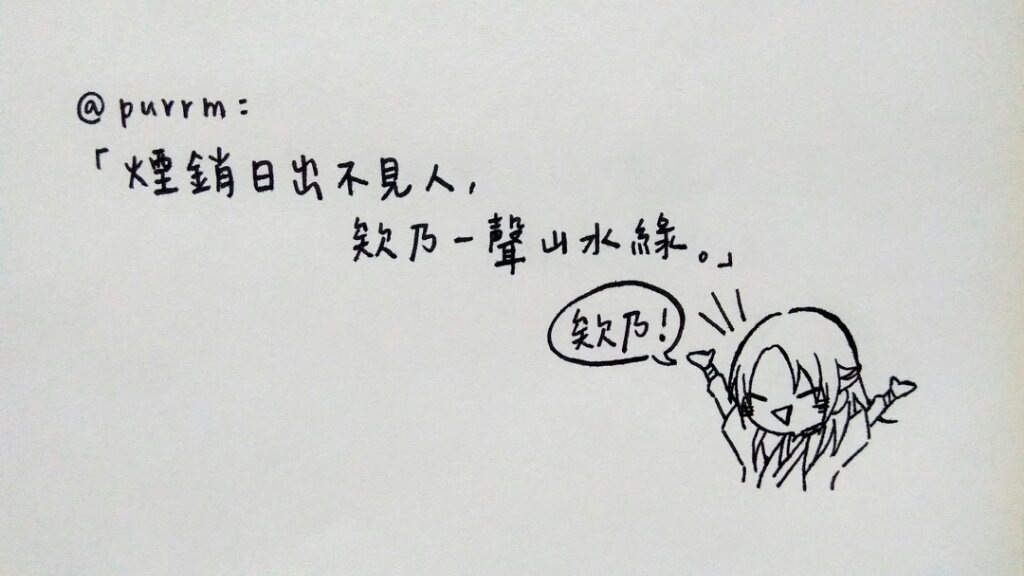 @purrm:
「煙銷日出不見人,
欸乃一聲山水綠。」
欸乃!